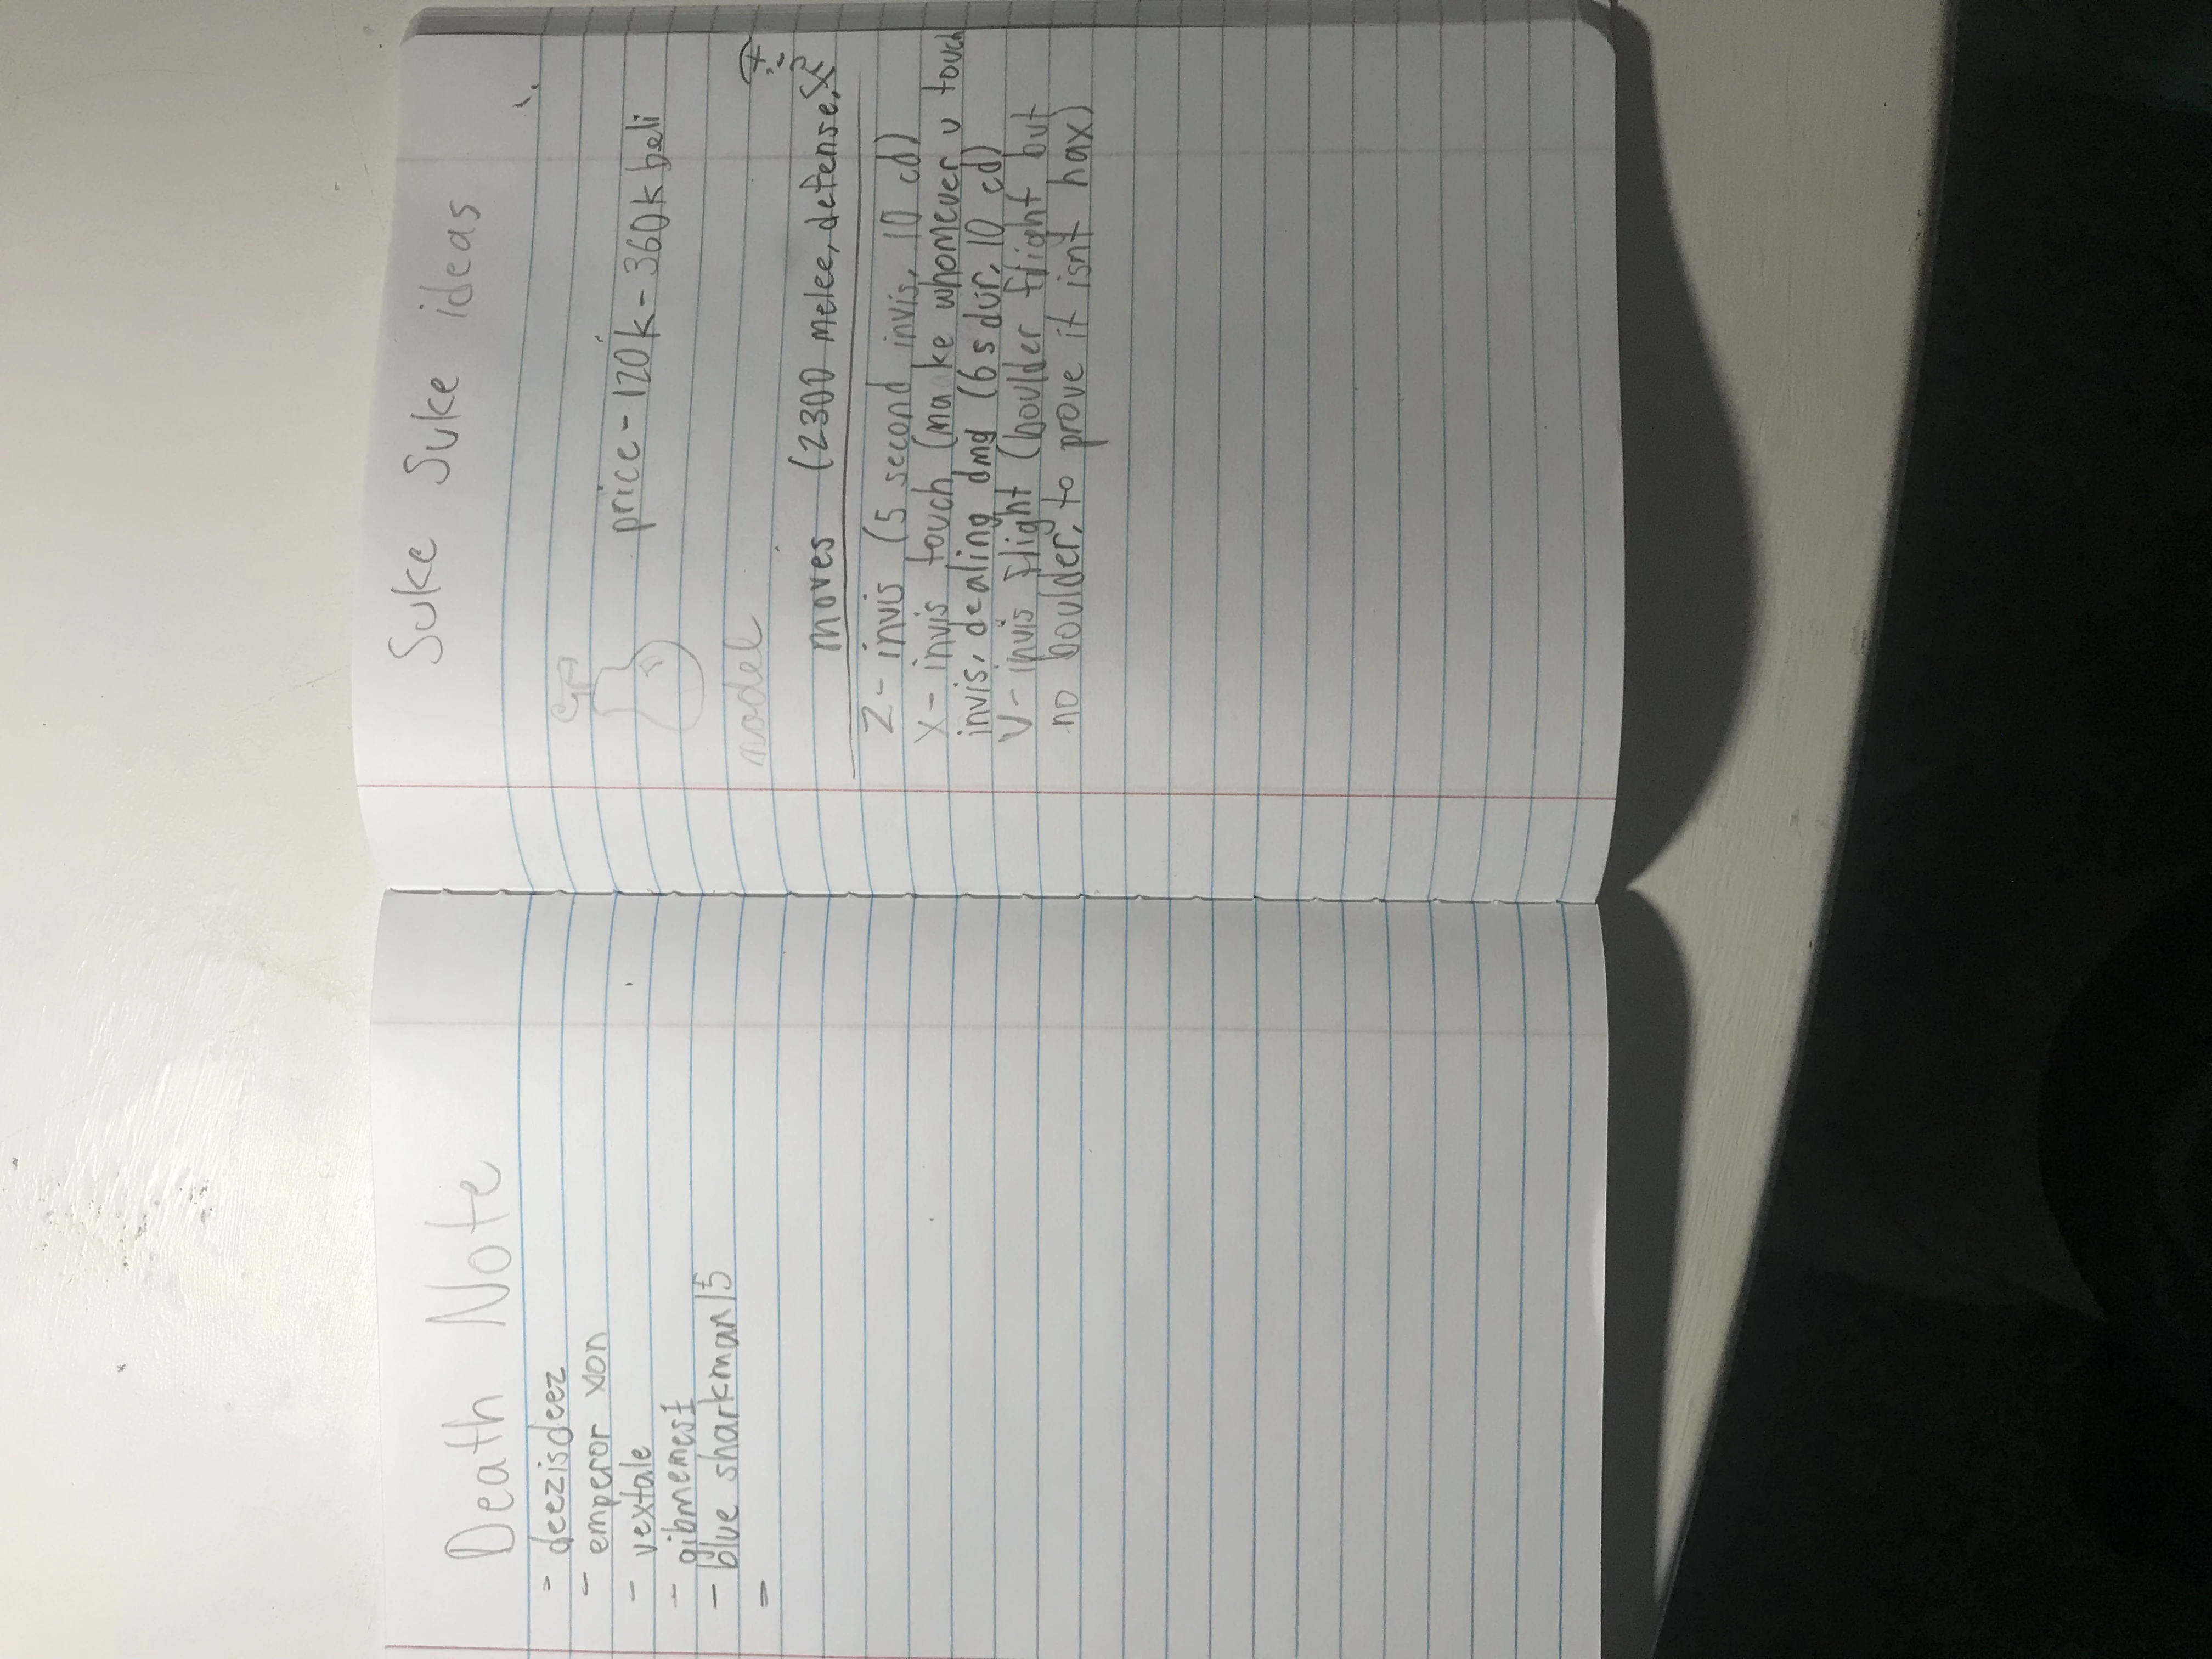 Death Note
- deezisdeez
- emperor xon
- vextale
- gibmemes1
- blue sharkman15
Suke Suke ideas
price - 120k - 360k beli
model
moves (2300 melee, defense,
Z - invis (5 second invis, 10 cd)
X - invis touch (make whomever u touch
invis, dealing dmg (6 s dur, 10 cd)
V - invis flight (boulder flight but
no boulder, to prove it isnt hax)